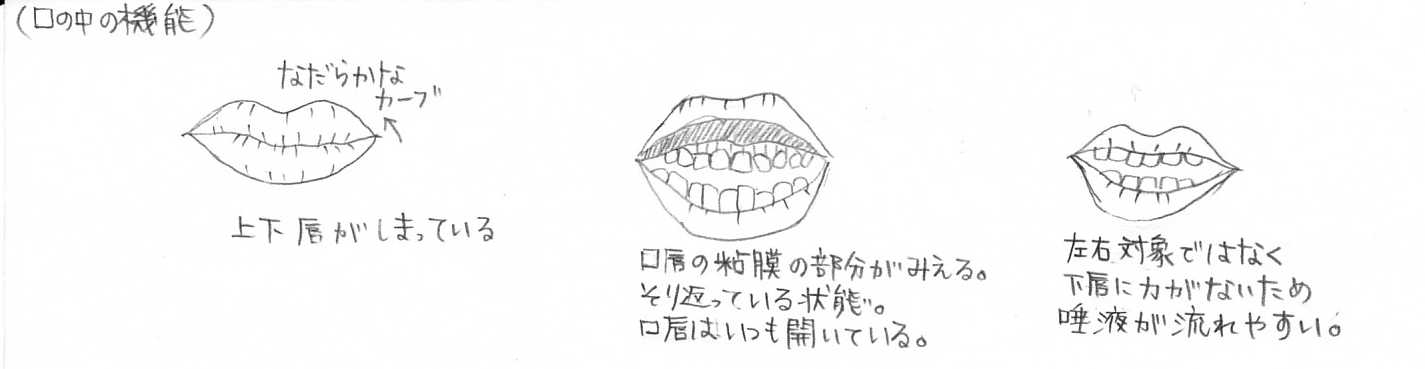 (口の中の機能)
なだらかな
カーブ
上下唇がしまっている
口唇の粘膜の部分がみえる。
そり返っている状態。
口唇はいつも開いている。
左右対象ではなく
下唇に力がないため
唾液が流れやすい。